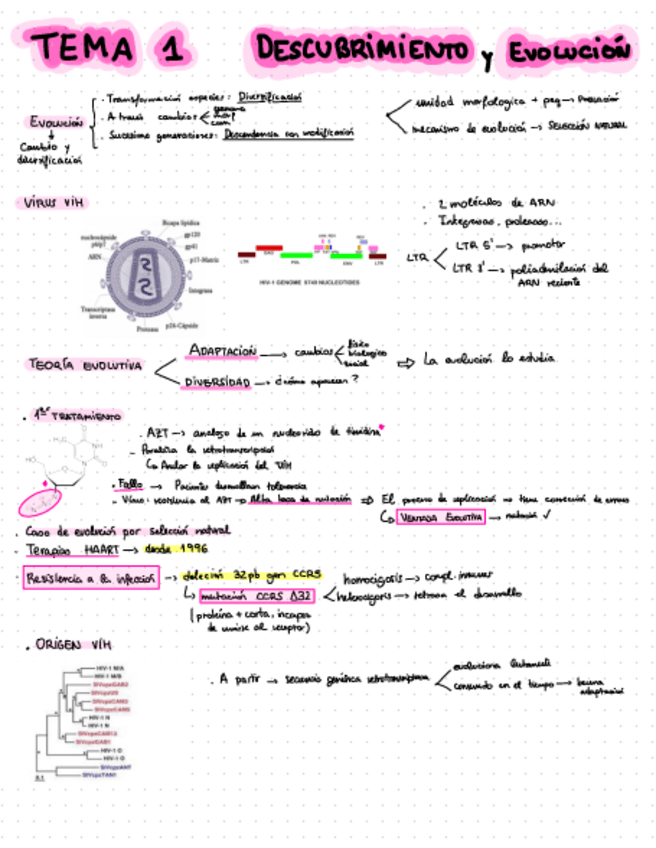 TEMA 1 DESCUBRIMIENTO y EVOLUCIÓN
EVOLUCIÓN
Cambio y
diversificación
· Transformación especies: Diversificación
· A través cambios
· Sucesivas generaciones: Descendencia con modificación
unidad morfologica + peq →
mecanismo de evolución → SELECCIÓN NATURAL
VÍRUS VIH
Bicapa lipídica
gp120
gp41
p17-Matriz
Integrasa
p24-Cápside
Proteasa
Transcriptasa
inversa
ARN
nucleocápside
LTR
GAG
POL
ENV
LTR
HIV-1 GENOME 9749 NUCLEOTIDES
· 2 moléculas de ARN
· Integrasas, proteasas...
LTR
LTR 5' → promotor
LTR 3' → poliadenilación del
ARN reciente
TEORÍA EVOLUTIVA
ADAPTACIÓN → cambios
físico
biológico
social
⇒ La evolución lo estudia
DIVERSIDAD → ¿cómo aparecen?
· 1er TRATAMIENTO
· AZT → analogo de un nucleosido de timidina
- Paraliza la retrotranscripción
↳ Anular la replicación del VIH
· Fallo → Pacientes desarrollan tolerancia
- Virus: resistencia al AZT → Alta tasa de mutación ⇒ El proceso de replicación no tiene corrección de errores
↳ VENTAJA EVOLUTIVA → mutación ✓
· Caso de evolución por selección natural
· Terapias HAART → desde 1996
· Resistencia a la infección → deleción 32pb gen CCR5
↳ mutación CCR5 Δ32
(proteína + corta, incapaz
de unirse al receptor)
homocigosis → compl. inmunes
heterocigosis → retrasa el desarrollo
· ORIGEN VIH
HIV-1 M/A
HIV-1 M/B
HIV-1 N
HIV-1 N
SIVcpzGAB1
HIV-1 O
HIV-1 O
SIVcpzANT
SIVcpzTAN1
0.1
· A partir → secuencia genética retrotranscriptasa
evoluciona lentamente
conservada en el tiempo → buena
adaptación